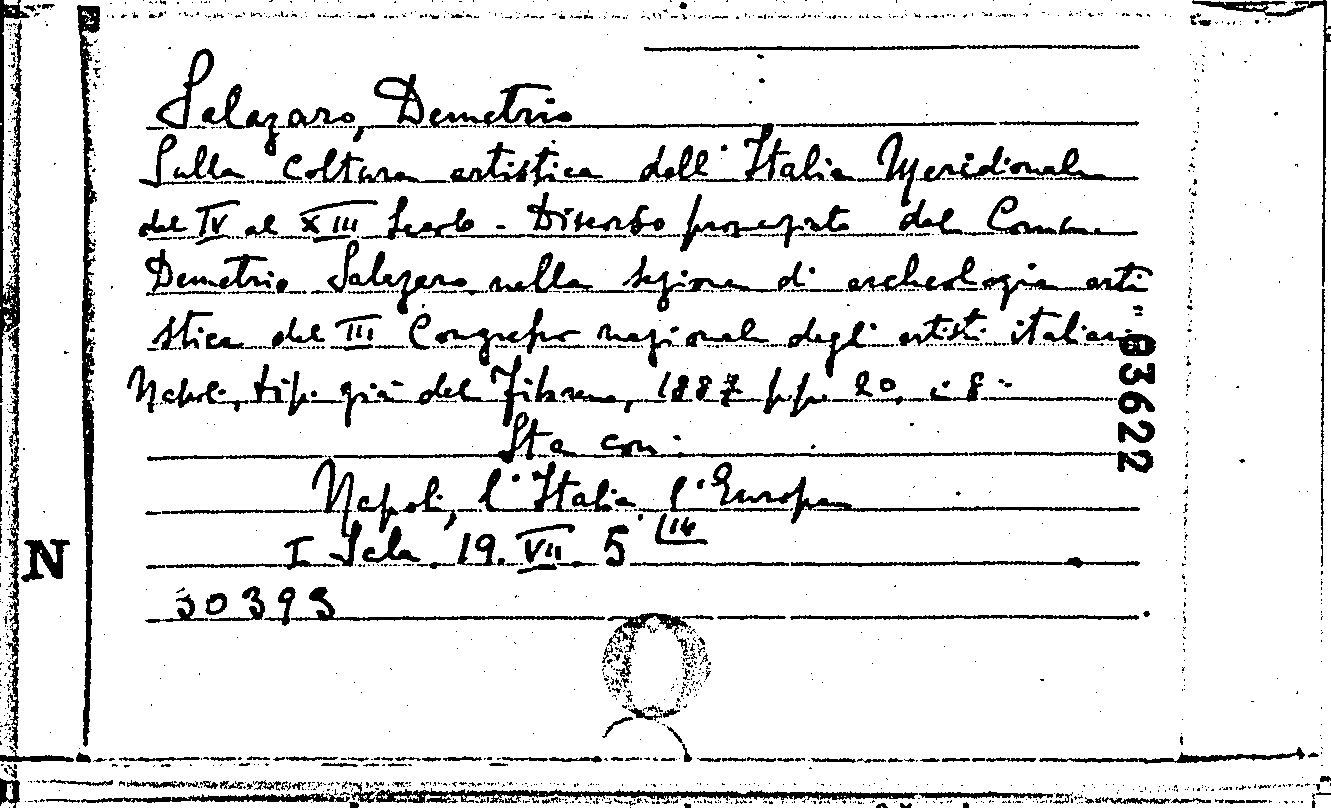 Salazaro, Demetrio
Sulla Coltura artistica dell'Italia Meridionale
dal IV al XIII Secolo - Discorso pronunziato dal Comm.
Demetrio Salazaro nella sezione di archeologia arti
stica del III Congresso nazionale degli artisti italiani
Napoli, tip. già del Fibreno, 1887 pp. 20, i 8º
Sta con:
Napoli, l'Italia, l'Europa
I Sala. 19. VII. 5 (14
30393
03622
N